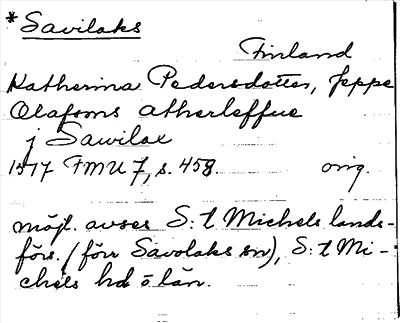 *Savilaks
Finland
Katherina Pedersdotter, Jeppe
Olafsons atherleffue
j Sawilax
1517 FMU 7, s. 458. orig.
möjl. avses S:t Michels lands-
förs. (förr Savolaks sn), S:t Mi-
chels hd o län.